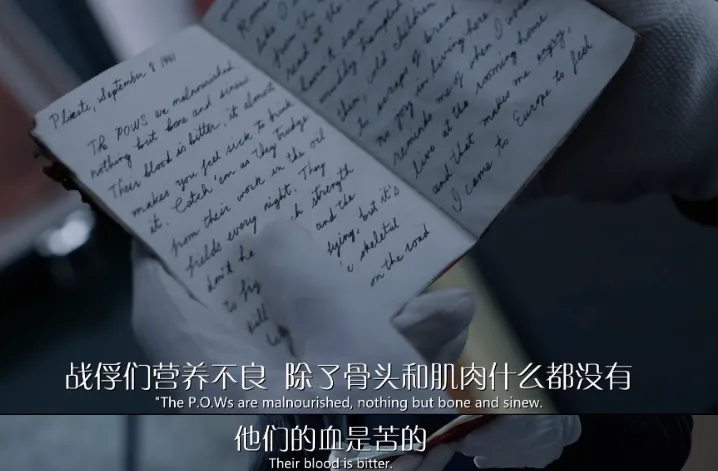 Ploeste, September 9, 1941
The POWS are malnourished
nothing but bone and sinew
Their blood is bitter, it's almost
makes you feel sick to drink
it. Catch 'em as they trudge
from their work in the oil
fields every night. They
don't strength
to and the
dying, but it's
skeletal
on the road
from the
read at the
children
scraps of bread
no joy in living here
reminds me of when I would
live at the rooming house
and that makes me angry,
I came to Europe to feel
战俘们营养不良 除了骨头和肌肉什么都没有
"The P.O.Ws are malnourished, nothing but bone and sinew.
他们的血是苦的
Their blood is bitter.